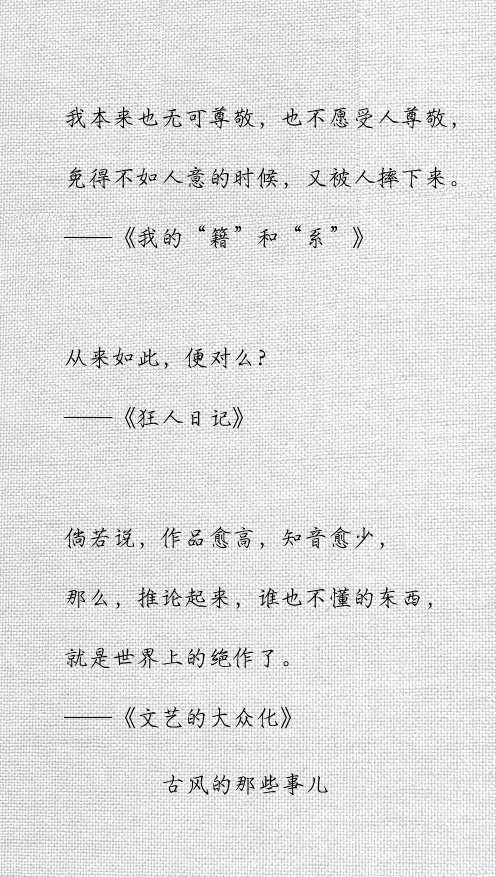 我本来也无可尊敬，也不愿受人尊敬，
免得不如人意的时候，又被人摔下来。
——《我的“籍”和“系”》
从来如此，便对么?
——《狂人日记》
倘若说，作品愈高，知音愈少，
那么，推论起来，谁也不懂的东西，
就是世界上的绝作了。
——《文艺的大众化》
古风的那些事儿